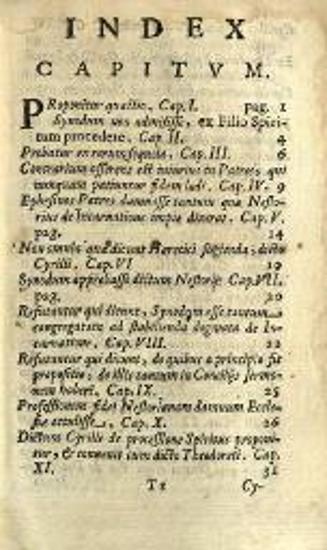 INDEX
CAPITVM.
PRoponitur quæstio. Cap. I. pag. 1
Synodum non admisisse, ex Filio Spiri-
tum procedere. Cap. II. 4
Probatur ex rerum sequela. Cap. III. 6
Contrarium asserens est iniurius in Patres, qui
nunquam patiuntur fidem lædi. Cap. IV. 9
Ephesinos Patres damnasse tantum quæ Nesto-
rius de Incarnatione impie dixerat. Cap. V.
pag. 14
Non omnia quæ dicunt Hæretici fugienda; dictū
Cyrilli. Cap. VI 19
Synodum approbasse dictum Nestorij. Cap. VII.
pag. 20
Refutantur qui dicunt, Synodum esse tantum
congregatam ad stabilienda dogmata de In-
carnatione. Cap. VIII. 22
Refutantur qui dicunt, de quibus a principio fit
propositio; de illis tantum in Concilijs sermo-
nem haberi. Cap. IX. 25
Professionem fidei Nestorianam damnum Eccle-
siæ attulisse. Cap. X. 26
Dictum Cyrilli de processione Spiritus proponi-
tur, & convenit cum dicto Theodoreti. Cap.
XI. 31
Cy-